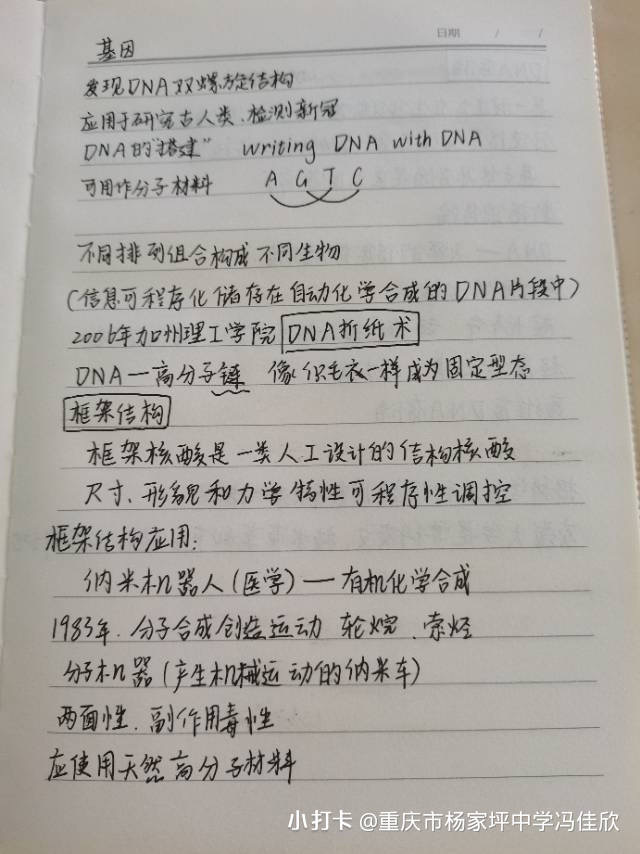 日期 / /
基因
发现DNA双螺旋结构
应用于研究古人类、检测新冠
DNA的"搭建" writing DNA with DNA
可用作分子材料 A G T C
不同排列组合构成不同生物
(信息可程序化储存在自动化学合成的DNA片段中)
2006年加州理工学院 DNA折纸术
DNA—高分子链 像织毛衣一样成为固定型态
框架结构
框架核酸是一类人工设计的结构核酸
尺寸、形貌和力学特性可程序性调控
框架结构应用:
纳米机器人(医学)—有机化学合成
1983年.分子合成创造运动 轮烷、索烃
分子机器(产生机械运动的纳米车)
两面性.副作用毒性
应使用天然高分子材料
小打卡 @重庆市杨家坪中学冯佳欣